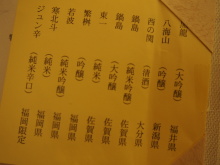 龍 (大吟醸) 福井県
八海山 (吟醸) 新潟県
西の関 (清酒) 大分県
鍋島 (大吟醸) 佐賀県
鍋島 (純米吟醸) 佐賀県
東一 (純米吟醸) 佐賀県
繁桝 (純米) 福岡県
若波 (純米吟醸) 福岡県
寒北斗 (純米辛口) 福岡県
ジュン辛 福岡限定